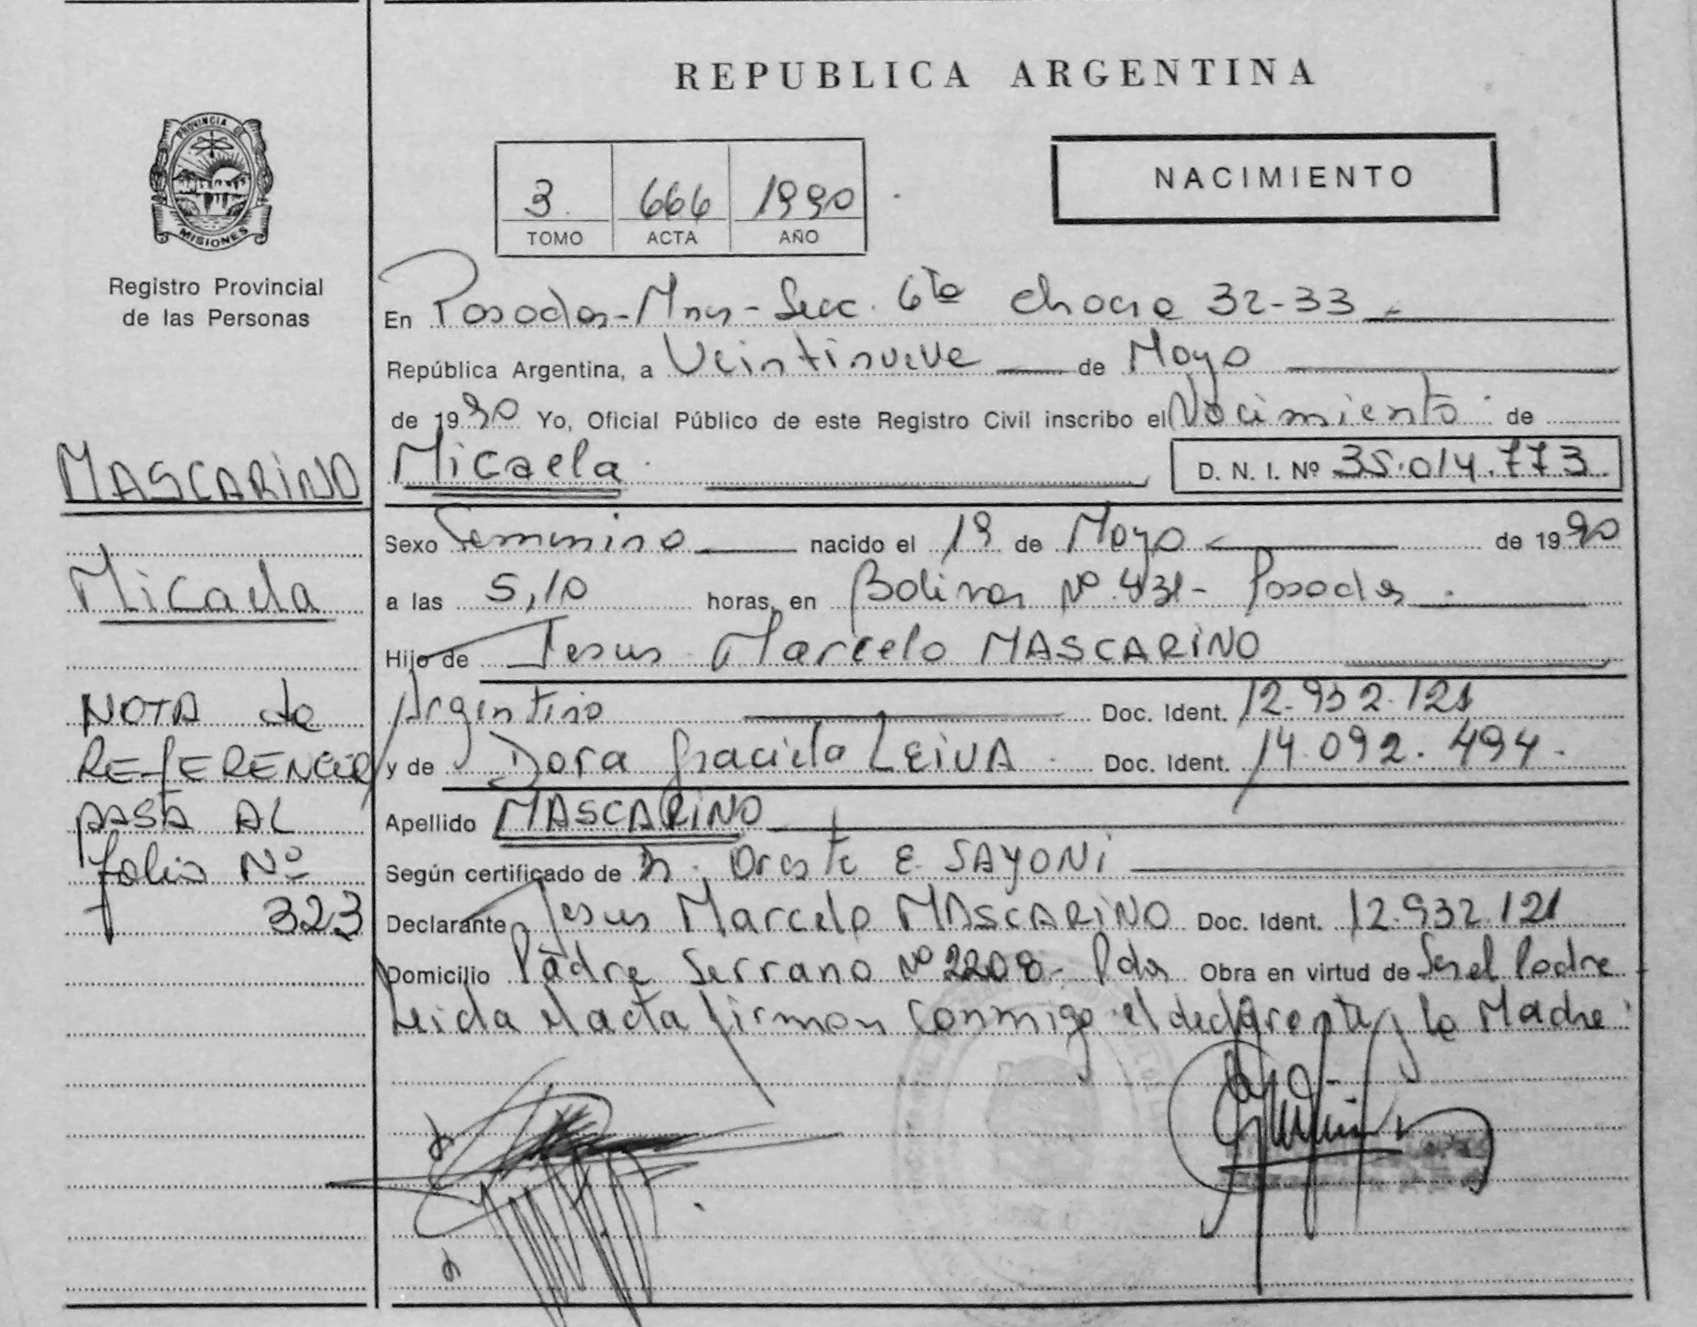 REPUBLICA ARGENTINA
PROVINCIA DE
MISIONES
Registro Provincial
de las Personas
3 666 1990
TOMO ACTA AÑO
NACIMIENTO
En Posadas-Mnes-Secc. 6ta chacra 32-33
República Argentina, a Veintinueve de Mayo
de 1990 Yo, Oficial Público de este Registro Civil inscribo el Nacimiento de
MASCARINO
Micaela
D. N. I. Nº 35.014.773
Sexo Femenino nacido el 19 de Mayo de 1990
Micaela
a las 5,10 horas, en Bolivar Nº 431- Posadas
Hijo de Jesus Marcelo MASCARINO
NOTA de
REFERENCIA
PASA AL
folio Nº
323
Argentino Doc. Ident. 12.932.121
y de Dora Graciela LEIVA Doc. Ident. 14.092.494
Apellido MASCARINO
Según certificado de Dr. Oreste E. SAYONi
Declarante Jesus Marcelo MASCARINO Doc. Ident. 12.932.121
Domicilio Padre Serrano Nº 2208- Pdas Obra en virtud de Ser el Padre
Leida el acta firman conmigo el declarante y la Madre